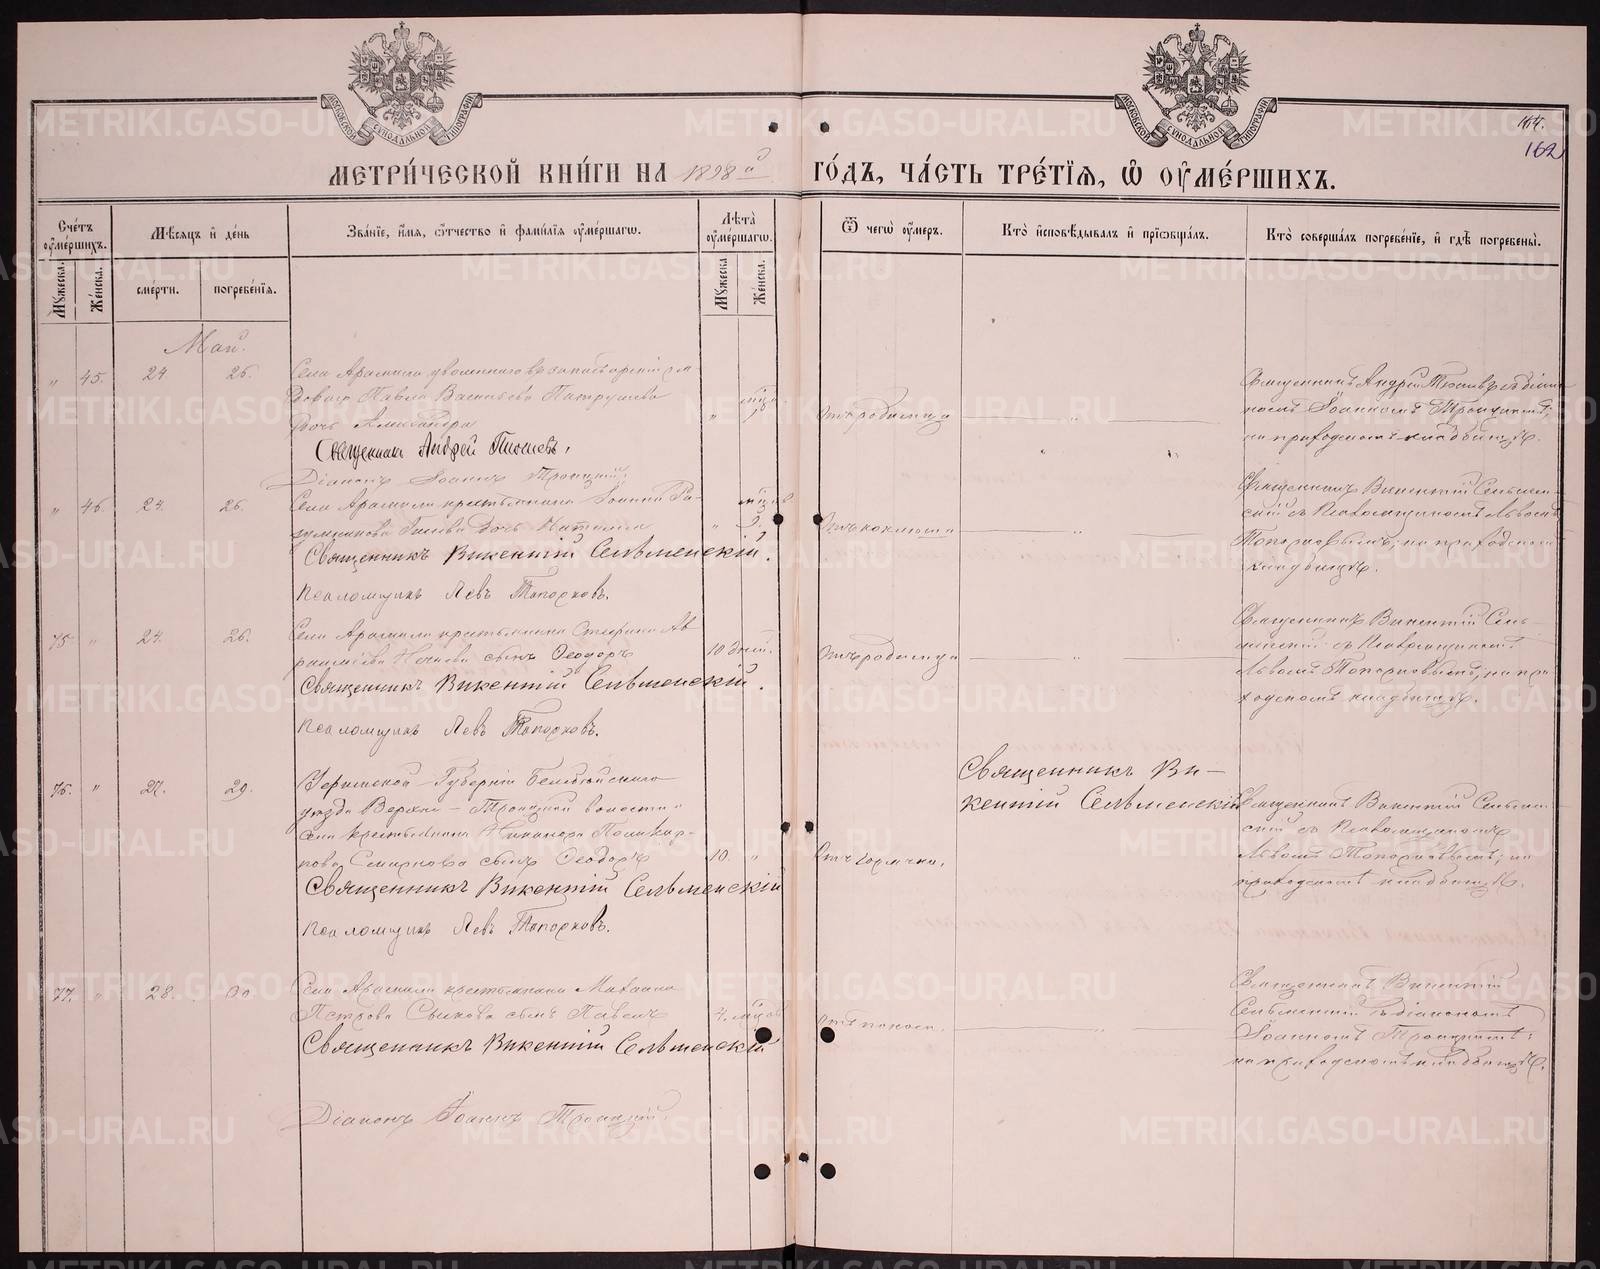 МОСКОВСКОЙ СѴНОДАЛЬНОЙ ТИПОГРАФІИ
МОСКОВСКОЙ СѴНОДАЛЬНОЙ ТИПОГРАФІИ
162
МЕТРИ́ЧЕСКОЙ КНИ́ГИ НА 1898 й ГО́ДЪ, ЧА́СТЬ ТРЕ́ТІЯ, Ѡ ОУМЕ́РШИХЪ.
Сче́тъ оуме́ршихъ.
Му́жеска.
Же́нска.
Мѣсяцъ и де́нь
сме́рти.
погребе́нія.
Зва́ніе, и́мя, ѻ́тчество и фами́лія оуме́ршагѡ.
Лѣта̀ оуме́ршагѡ.
Му́жеска
Же́нска.
Ѿ чегѡ̀ оу́меръ.
Кто̀ исповѣ́дывалъ и пріѡбща́лъ.
Кто̀ соверша́лъ погребе́ніе, и гдѣ̀ погребены̀.
Май.
" 45. 24 26.
Села Арамили
Павла Васильева Патрушева
дочь Александра
Священник Андрей
Діаконъ Іоаннъ Троицкій
отъ родимца
Священникъ Андрей
Іоанномъ Троицкимъ;
на приходскомъ кладбищѣ.
" 46. 24. 26.
Села Арамили крестьянина Іоанна
дочь Наталия
" 9.
Священникъ Викентій Сельменскій.
Псаломщикъ Левъ Топорковъ.
Отъ коклюша
Священникъ Викентій Сельмен-
скій съ Псаломщикомъ Львомъ
Топорковымъ; на приходскомъ
кладбищѣ.
75 " 24. 26.
Села Арамили крестьянина Стефана Ав
раамиева сынъ Ѳеодоръ
10 дней.
Священникъ Викентій Сельменскій.
Псаломщикъ Левъ Топорковъ.
Отъ родимца
Священникъ Викентій Сель-
менскій съ Псаломщикомъ
Львомъ Топорковымъ; на при-
ходскомъ кладбищѣ.
76. " 27. 29.
Уфимской Губерніи Белебейскаго
уѣзда Верхне-Троицкой волости и
села крестьянина Никанора Поликар-
пова Смирнова сынъ Ѳеодоръ
10. "
Священникъ Викентій Сельменскій
Псаломщикъ Левъ Топорковъ.
Отъ горячки.
Священникъ Ви-
кентій Сельменскій
Священникъ Викентій Сельмен-
скій съ Псаломщикомъ
Львомъ Топорковымъ; на
приходскомъ кладбищѣ.
77. " 28. 30
Села Арамили крестьянина Михаила
Петрова сынъ Павелъ
4. мѣсяц
Священникъ Викентій Сельменскій
Діаконъ Іоаннъ Троицкій
отъ поноса.
Священникъ Викентій
Сельменскій съ діакономъ
Іоанномъ Троицкимъ;
на приходскомъ кладбищѣ.
METRIKI.GASO-URAL.RU